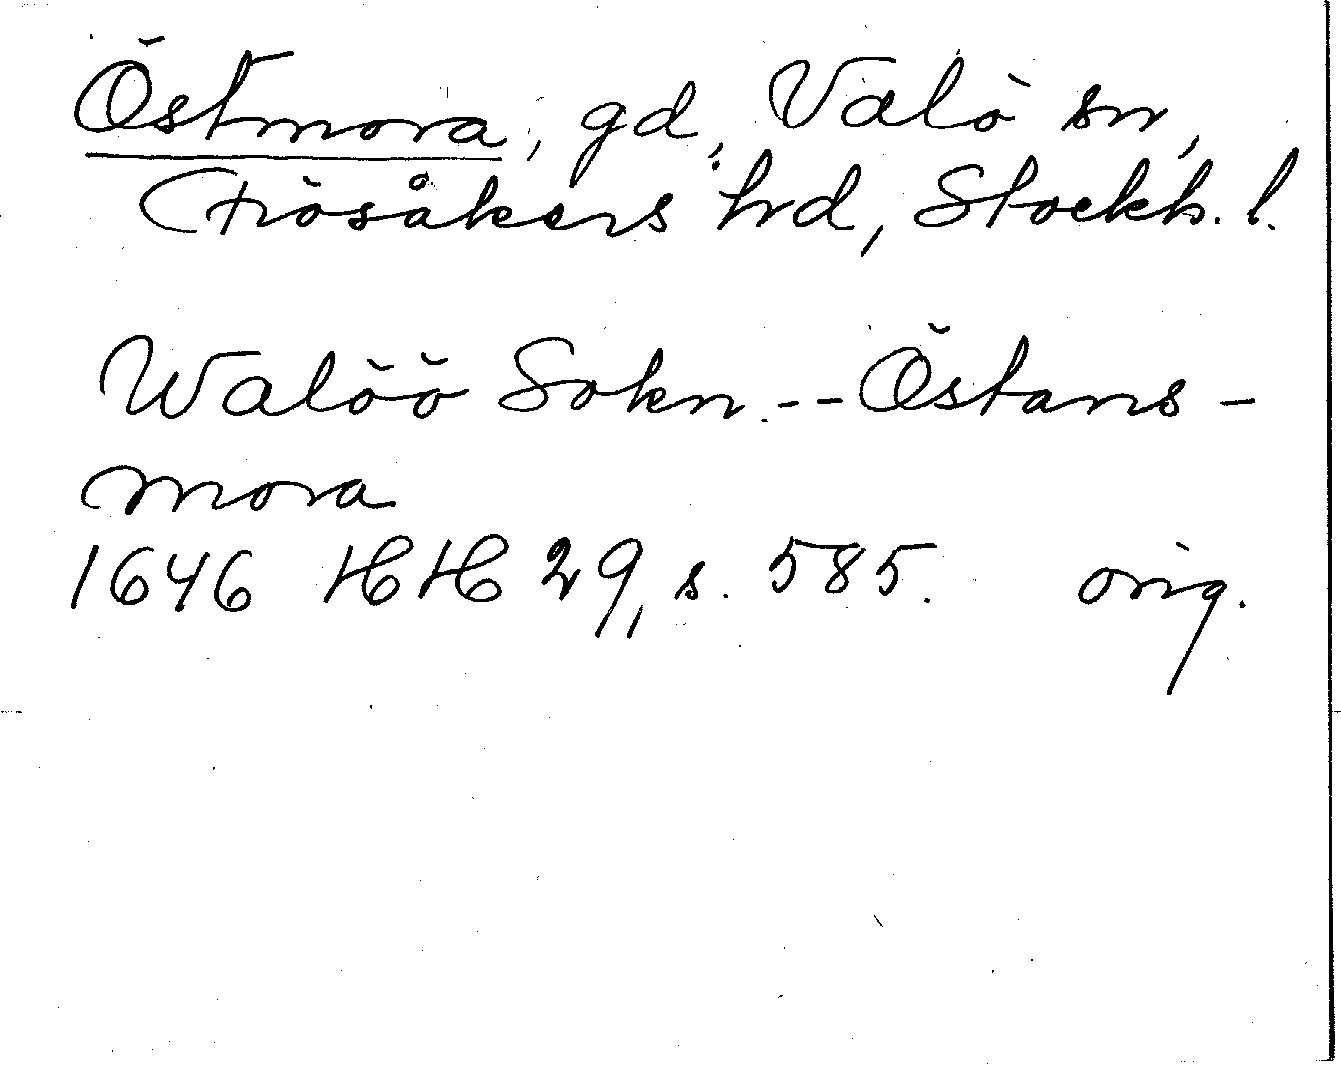 Östmora, gd, Valö sn,
Frösåkers hrd, Stockh. l.
Walöö Sokn. -- Östans-
mora
1646 HH 29, s. 585. orig.